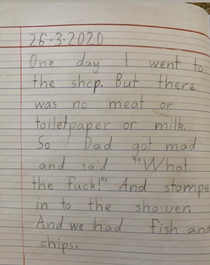 26·3·2020
One day I went to
the shop. But there
was no meat or
toiletpaper or milk.
So Dad got mad
and said "What
the fuck!" And stompe
in to the shower.
And we had fish and
chips.